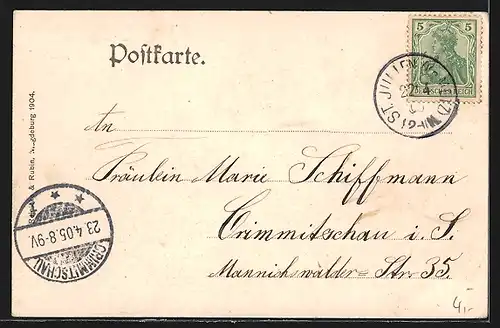 Postkarte.
5
DEUTSCHES REICH
ST. JULIEN
An
Fräulein Marie Schiffmann
Crimmitschau i. S.
Mannichswalder-Str. 35.
CRIMMITSCHAU
23.4.05.8-9V.
& Rubin, Magdeburg 1904.
4,-